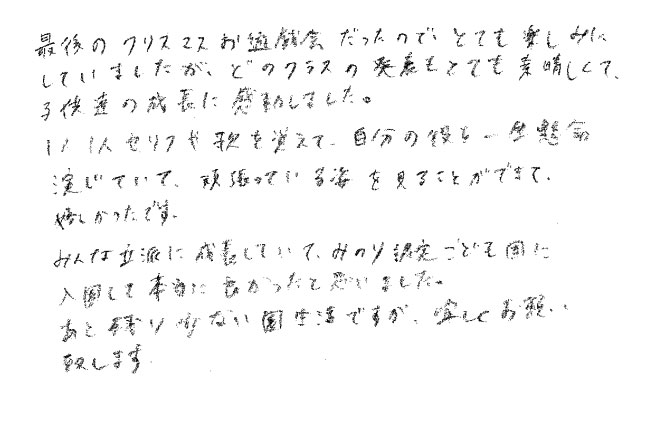 最後のクリスマスお遊戯会だったので、とても楽しみに
していましたが、どのクラスの発表もとても素晴しくて、
子供達の成長に感動しました。
1人1人セリフや歌を覚えて、自分の役を一生懸命
演じていて、頑張っている姿を見ることができて、
嬉しかったです。
みんな立派に成長していて、みのり認定こども園に
入園して本当に良かったと思いました。
あと残り少ない園生活ですが、宜しくお願い
致します。